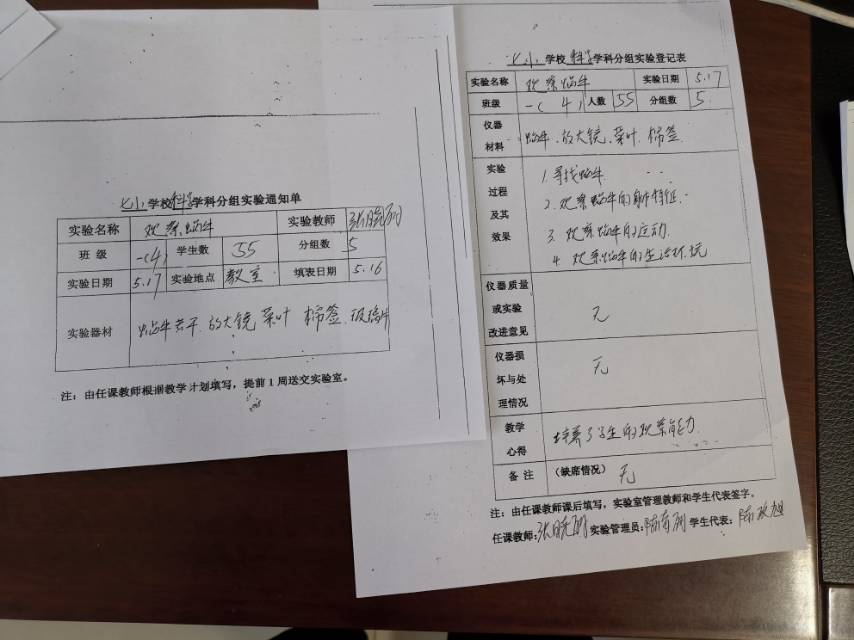 七小学校科学学科分组实验通知单
实验名称 观察蜗牛 实验教师
班 级 一(4) 学生数 55 分组数 5
实验日期 5.17 实验地点 教室 填表日期 5.16
实验器材 蜗牛若干、放大镜 菜叶 棉签、玻璃片
注：由任课教师根据教学计划填写，提前1周送交实验室。
七小学校科学学科分组实验登记表
实验名称 观察蜗牛 实验日期 5.17
班级 一(4) 人数 55 分组数 5
仪器材料 蜗牛、放大镜、菜叶、棉签
实验过程及其效果
1.寻找蜗牛
2.观察蜗牛的身体特征.
3.观察蜗牛的运动
4.观察蜗牛的生活环境
仪器质量或实验改进意见 无
仪器损坏与处理情况 无
教学心得 培养了学生的观察能力
备注 (缺席情况) 无
注：由任课教师课后填写，实验室管理教师和学生代表签字。
任课教师: 实验管理员: 学生代表: